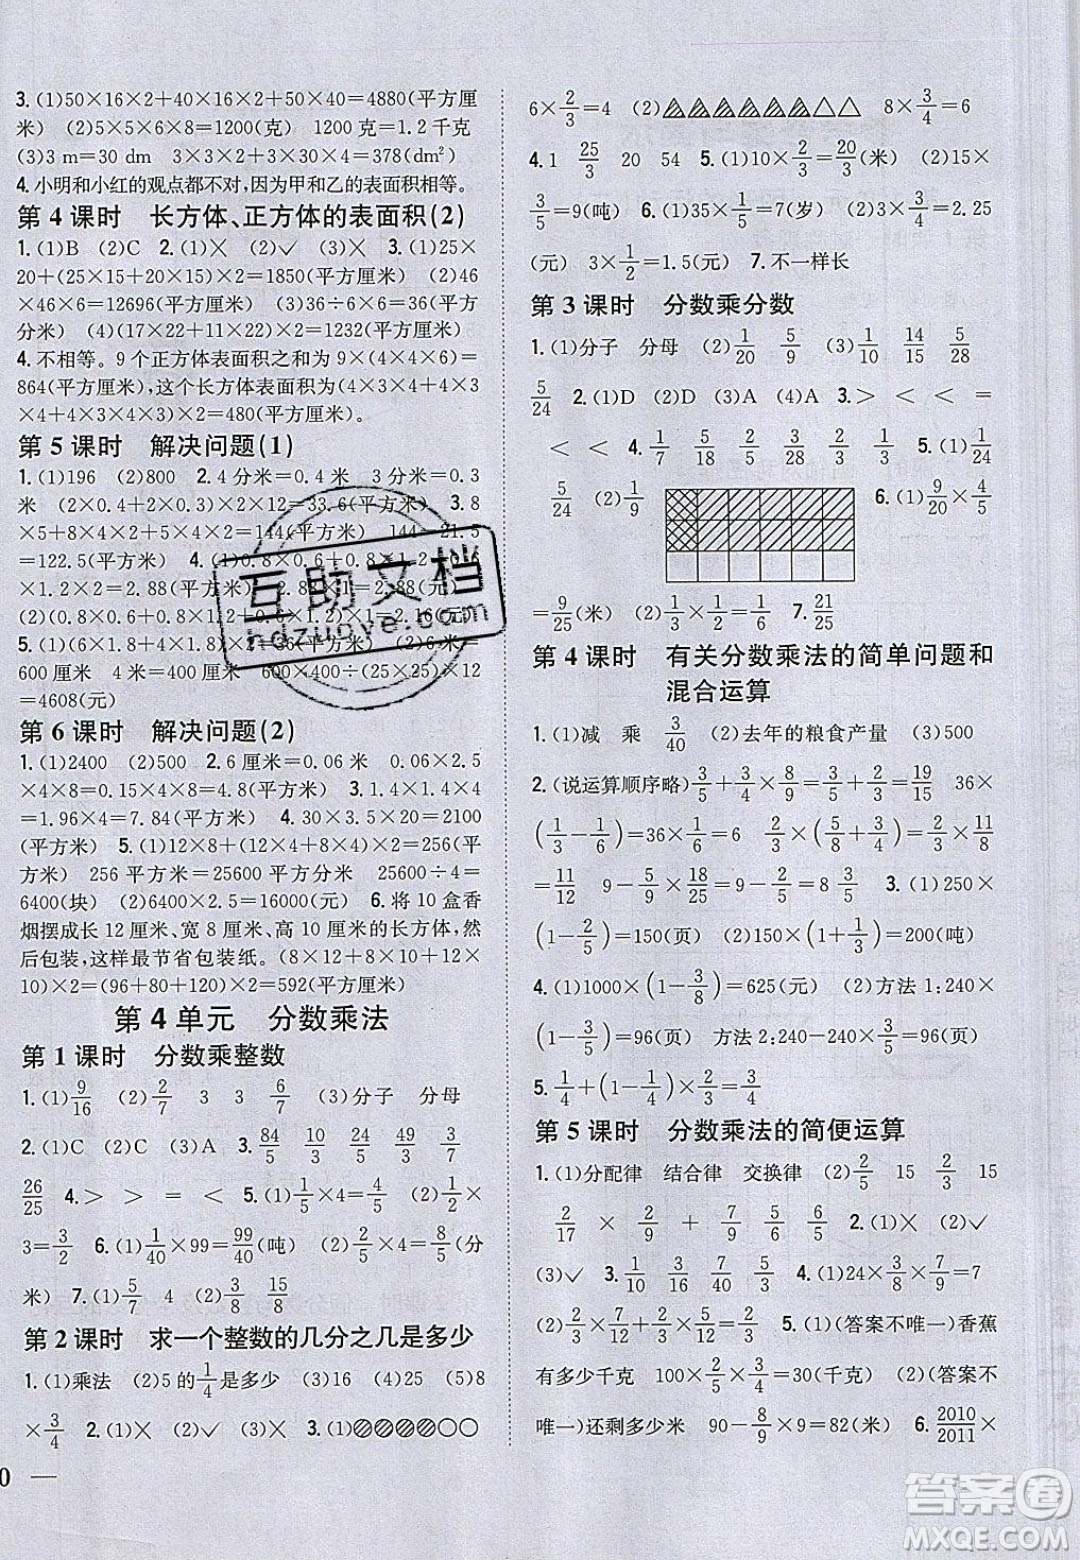 3.(1)50×16×2+40×16×2+50×40=4880(平方厘
米) (2)5×5×6×8=1200(克) 1200克=1.2千克
(3)3 m=30 dm 3×3×2+3×30×4=378(dm²)
4.小明和小红的观点都不对,因为甲和乙的表面积相等。
第4课时 长方体、正方体的表面积(2)
1.(1)B (2)C 2.(1)× (2)✓ (3)× 3.(1)25×
20+(25×15+20×15)×2=1850(平方厘米) (2)46×
46×6=12696(平方厘米) (3)36÷6×4×2=48(平方
分米) (4)(17×22+11×22)×2=1232(平方厘米)
4.不相等。9个正方体表面积之和为9×(4×4×6)=
864(平方厘米),这个长方体表面积为(4×3×4×3+4×
3×4+4×3×4)×2=480(平方厘米)。
第5课时 解决问题(1)
1.(1)196 (2)800 2.4分米=0.4米 3分米=0.3
米 (2×0.4+2×0.3)×12=33.6(平方米) 3.8
×5+8×4×2+5×4×2=144(平方米) 144-21.5
=122.5(平方米) 4.(1)0.8×0.6+0.8×1.2×2+0.6
×1.2×2=2.88(平方米)
(2)(0.8×0.6+0.8×1.2+0.6×1.2)×1=2.16(元)
5.(1)(4×1.6+4×1.8)×2=
600厘米 600×400÷(
=4608(元)
第6课时 解决问题(2)
1.(1)2400 (2)500 2.6厘米=0.06米 0.06×2.5
×4×8=4.8(平方米) 3.1.4×1.4=1.96(平方米)
1.96×4=7.84(平方米) 4.30×3.5×4×5=2100
(平方米) 5.(1)12×8+(12×4+8×4)×2=256(平方
米) 256平方米=25600平方分米 25600÷4=
6400(块) (2)6400×2.5=16000(元) 6.将10盒香
烟摆成长12厘米、宽8厘米、高10厘米的长方体,然
后包装,这样最节省包装纸。(8×12+8×10+12×10
)×2=(96+80+120)×2=592(平方厘米)
第4单元 分数乘法
第1课时 分数乘整数
1.(1)9/16 (2)2/7 3 3 6/7 (3)分子 分母
2.(1)C (2)C (3)A 3.84/5 10/3 24/5 49/2 3/7
26/25 4.> > = < 5.(1)1/5×4=4/5 (2)1/2×
3=3/2 6.(1)1/40×99=99/40(吨) (2)2/5×4=8/5(分
米) 7.(1)5/7 4 (2)3/8 15/8
第2课时 求一个整数的几分之几是多少
1.(1)乘法 (2)5的1/4是多少 (3)16 (4)25 (5)8
×3/4 2.(1)× (2)× 3.(1)
6×2/3=4 (2) 8×3/4=6
4.1 25/3 20 54 5.(1)10×2/3=20/3(米) (2)15×
3/5=9(吨) 6.(1)35×1/5=7(岁) (2)3×3/4=2.25
(元) 3×1/2=1.5(元) 7.不一样长
第3课时 分数乘分数
1.(1)分子 分母 (2)1/20 5/9 (3)1/10 14/15 5/28
5/24 2.(1)D (2)D (3)A (4)A 3.> < =
< < 4.1/7 5/18 2/5 3/8 2/3 5.(1)1/24
5/24 (2)1/9 6.(1)9/20×4/5
=9/25(米) (2)1/4×2/3=1/6 7.21/25
第4课时 有关分数乘法的简单问题和
混合运算
1.(1)减 乘 3/40 (2)去年的粮食产量 (3)500
2.(说运算顺序略)3/5+4/5×5/6=3/5+2/3=19/15 36×
(1/3-1/6)=36×1/6=6 2/3×(5/8+3/4)=2/3×11/8
=11/12 9-5/9×18/25=9-2/5=8 3/5 3.(1)250×
(1-2/5)=150(页) (2)150×(1+1/3)=200(吨)
4.(1)1000×(1-3/8)=625(米) (2)方法1:240×(1-
3/5)=96(页) 方法2:240-240×3/5=96(页)
5.1/4+(1-1/4)×2/3=3/4
第5课时 分数乘法的简便运算
1.(1)分配律 结合律 交换律 (2)2/5 15 2/3 15
2/17 × 2/9 + 7/9 5/6 6/5 2.(1)× (2)✓
(3)✓ 3.1/10 3/16 2/7 4.(1)24×3/8×7/9=7
(2)2/3×7/12+1/3×7/12=7/12 5.(1)(答案不唯一)香蕉
有多少千克 100×2/5×3/4=30(千克) (2)(答案不
唯一)还剩多少米 90-8/9×9=82(米) 6.2010/2011×
0 —
互助文档
hdzuoye.com
答案圈
MXQE.COM